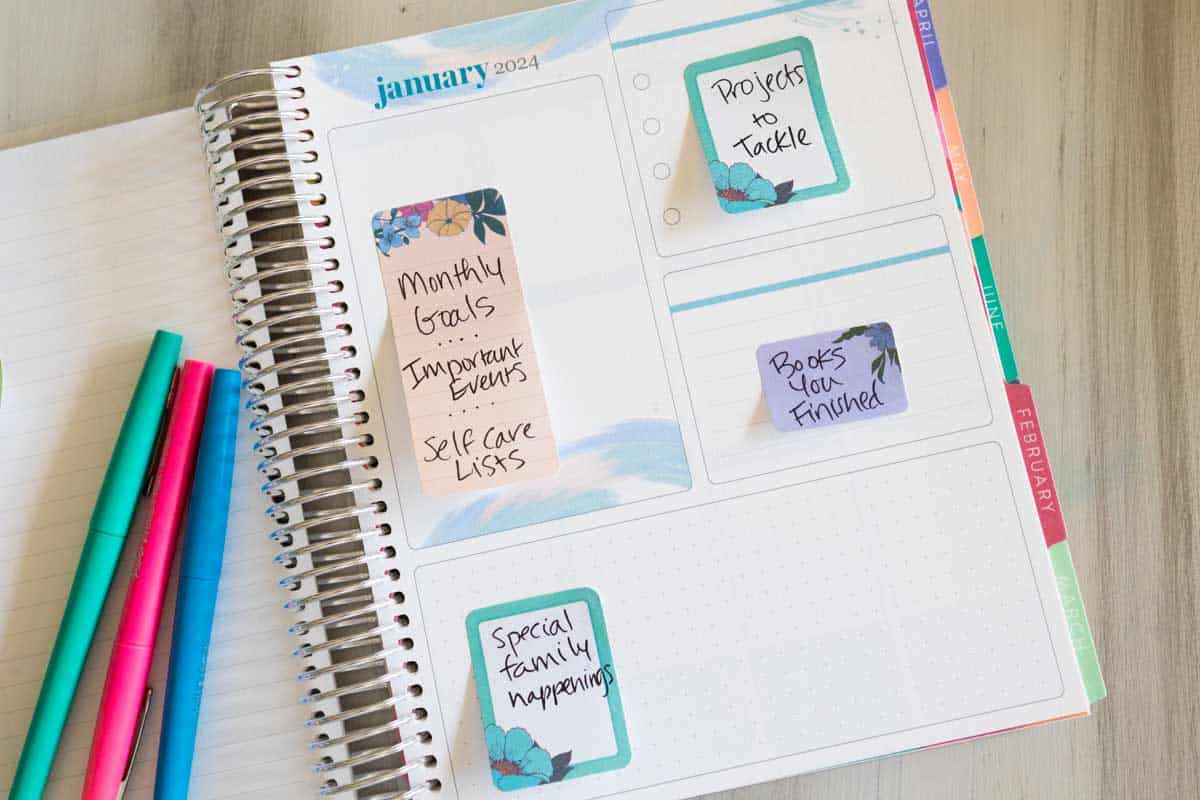 january 2024
Projects
to
Tackle
Monthly
Goals
....
Important
Events
....
Self Care
Lists
Books
You
Finished
Special
family
happenings
APRIL
MAY
JUNE
FEBRUARY
MARCH